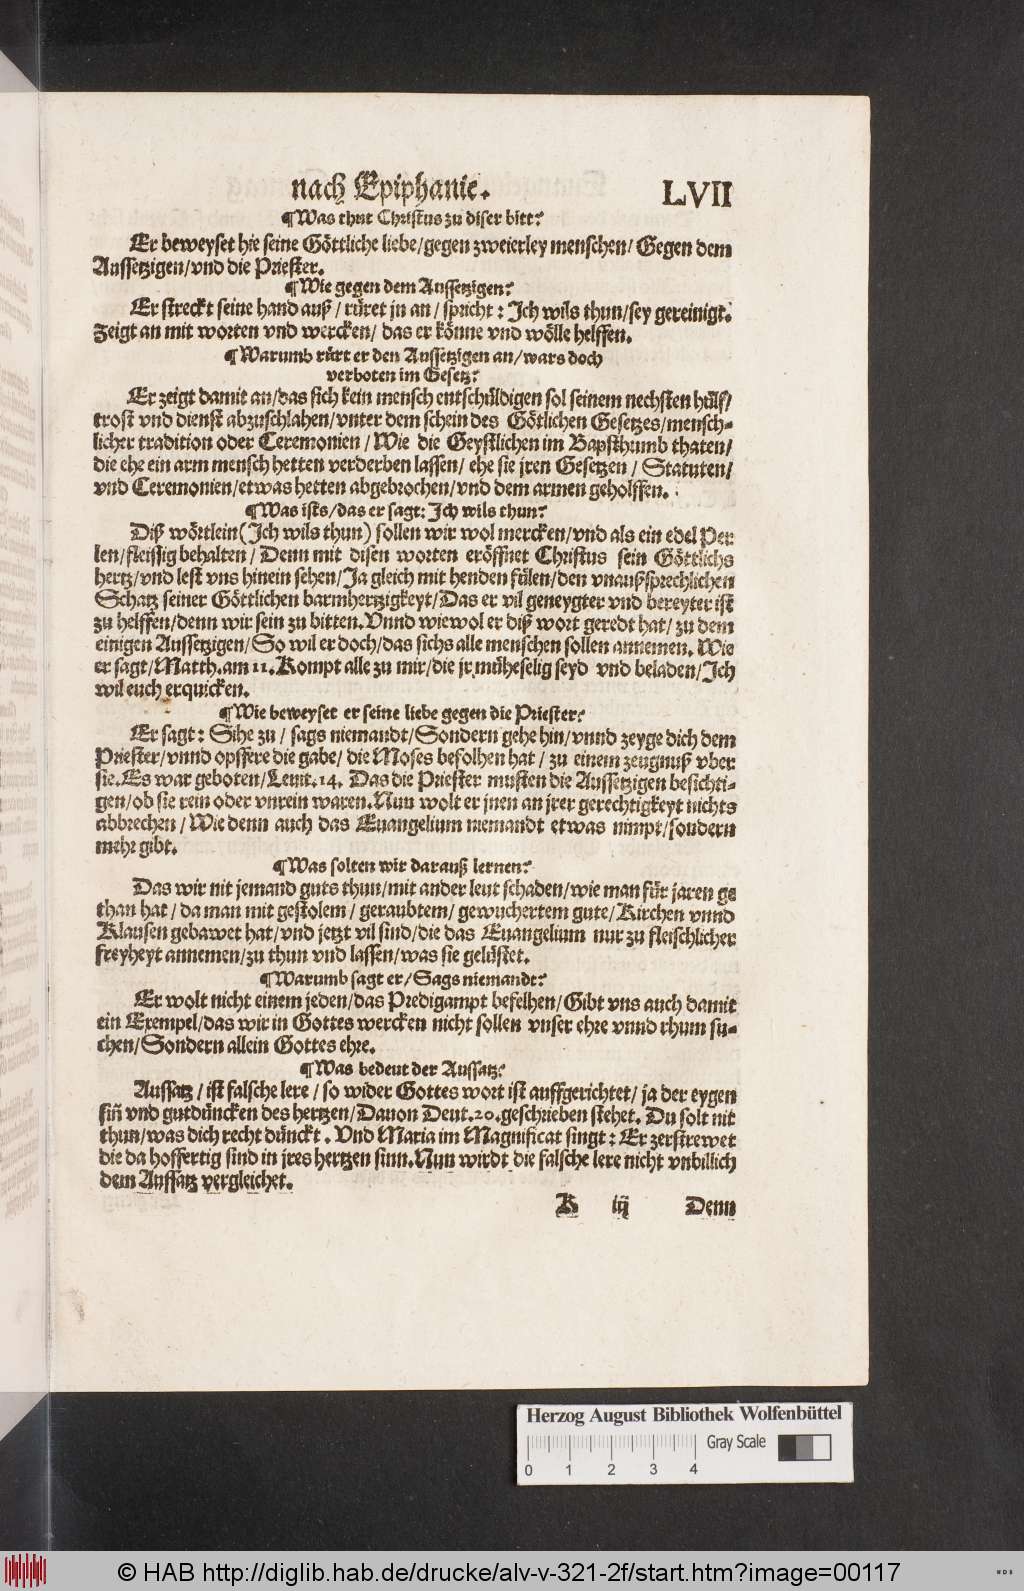 nach Epiphanie. LVII
¶Was thut Christus zu diser bitt?
Er beweyset hie seine Göttliche liebe/gegen zweierley menschen/ Gegen dem
Aussetzigen/vnd die Priester.
¶Wie gegen dem Aussetzigen?
Er streckt seine hand auß / rüret jn an / spricht : Ich wils thun/sey gereinigt.
Zeigt an mit worten vnd wercken/ das er könne vnd wölle helffen.
¶Warumb rürt er den Aussetzigen an/wars doch
verboten im Gesetz?
Er zeigt damit an/das sich kein mensch entschüldigen sol seinem nechsten hülf/
trost vnd dienst abzuschlahen/vnter dem schein des Götlichen Gesetzes/mensch-
licher tradition oder Ceremonien / Wie die Geystlichen im Bapsthumb thaten/
die ehe ein arm mensch hetten verderben lassen/ ehe sie jren Gesetzen / Statuten/
vnd Ceremonien/etwas hetten abgebrochen/vnd dem armen geholffen.
¶Was ists/das er sagt: Ich wils thun?
Diß wörtlein (Ich wils thun) sollen wir wol mercken/vnd als ein edel Per
len/fleissig behalten / Denn mit disen worten eröffnet Christus sein Göttlichs
hertz/vnd lest vns hinein sehen/Ja gleich mit henden fülen/den vnaußsprechlichen
Schatz seiner Göttlichen barmhertzigkeyt/Das er vil geneygter vnd bereyter ist
zu helffen/denn wir sein zu bitten.Vnnd wiewol er diß wort geredt hat/ zu dem
einigen Aussetzigen/So wil er doch/das sichs alle menschen sollen annemen. Wie
er sagt/Matth.am 11.Kompt alle zu mir/die jr müheselig seyd vnd beladen/Ich
wil euch erquicken.
¶Wie beweyset er seine liebe gegen die Priester?
Er sagt : Sihe zu / sags niemandt/Sondern gehe hin/vnnd zeyge dich dem
Priester/vnnd opffere die gabe/ die Moses befolhen hat / zu einem zeugnuß vber
sie.Es war geboten/Leuit.14. Das die Priester musten die Aussetzigen besichti-
gen/ob sie rein oder vnrein waren.Nun wolt er jnen an jrer gerechtigkeyt nichts
abbrechen / Wie denn auch das Euangelium niemandt etwas nimpt/sondern
mehr gibt.
¶Was solten wir darauß lernen?
Das wir nit jemand guts thun/mit ander leut schaden/wie man für jaren ge
than hat / da man mit gestolem / geraubtem/ gewuchertem gute/ Kirchen vnnd
Klausen gebawet hat/vnd jetzt vil sind/die das Euangelium nur zu fleischlicher
freyheyt annemen/zu thun vnd lassen/was sie gelüstet.
¶Warumb sagt er/ Sags niemandt?
Er wolt nicht einem jeden/das Predigampt befelhen/Gibt vns auch damit
ein Exempel/das wir in Gottes wercken nicht sollen vnser ehre vnnd rhum su-
chen/Sondern allein Gottes ehre.
¶Was bedeut der Aussatz?
Aussatz / ist falsche lere / so wider Gottes wort ist auffgerichtet/ ja der eygen
siñ vnd gutdüncken des hertzen/Dauon Deut.20.geschrieben stehet. Du solt nit
thun/was dich recht dünckt . Vnd Maria im Magnificat singt : Er zerstrewet
die da hoffertig sind in jres hertzen sinn.Nun wirdt die falsche lere nicht vnbillich
dem Aussatz vergleichet.
K iij Denn
Herzog August Bibliothek Wolfenbüttel
0 1 2 3 4 Gray Scale
© HAB http://diglib.hab.de/drucke/alv-v-321-2f/start.htm?image=00117